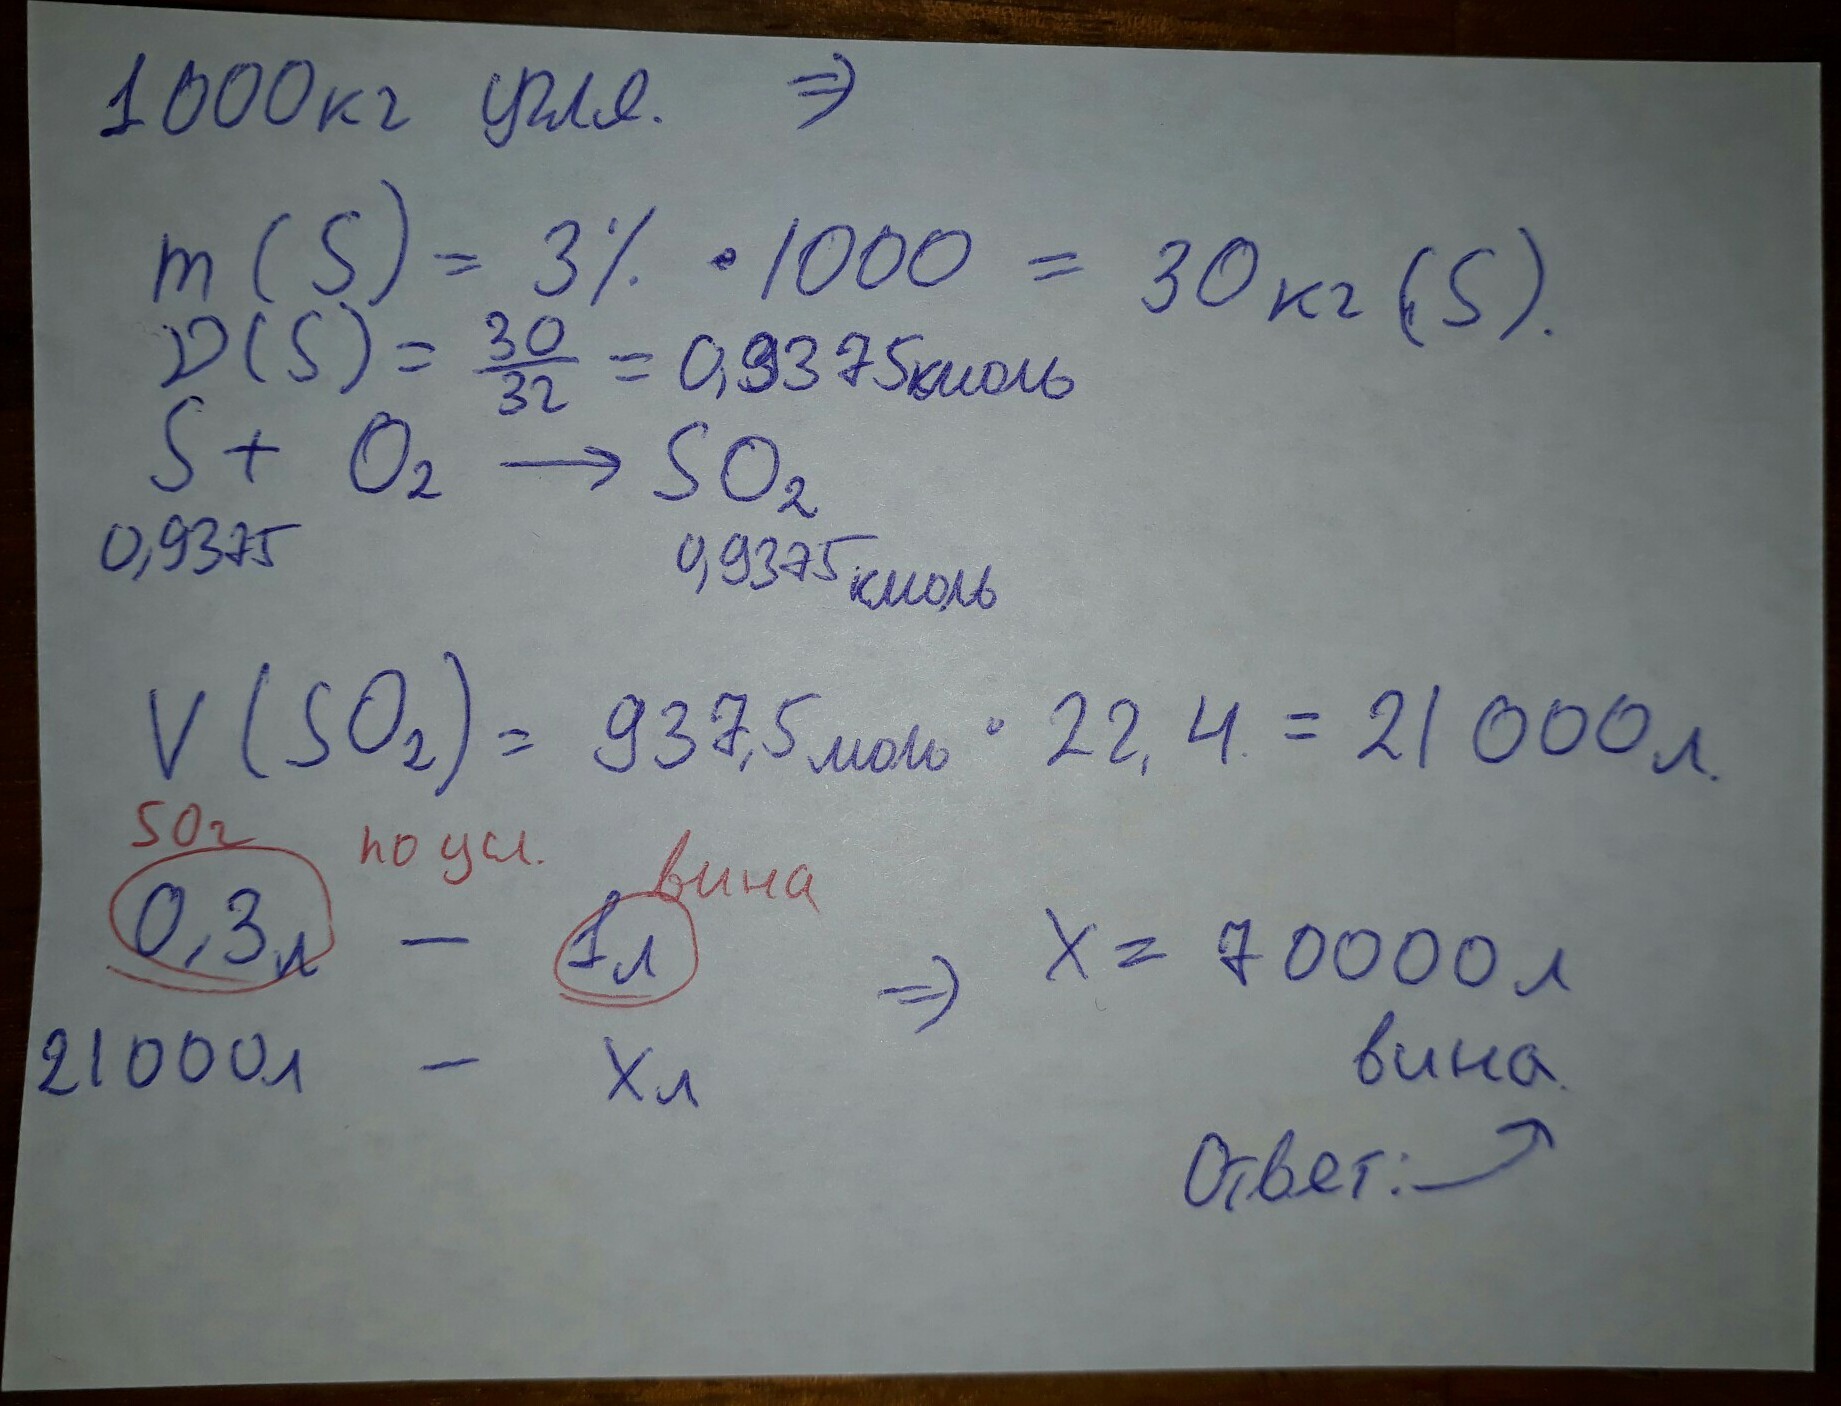 1000кг угля. ⇒
m(S) = 3% · 1000 = 30кг(S).
ν(S) = 30/32 = 0,9375кмоль
S + O₂ → SO₂
0,9375 0,9375кмоль
V(SO₂) = 937,5моль · 22,4 = 21000л.
SO₂ по усл. вина
0,3л – 1л ⇒ X = 70000л
вина.
21000л – Xл
Ответ: